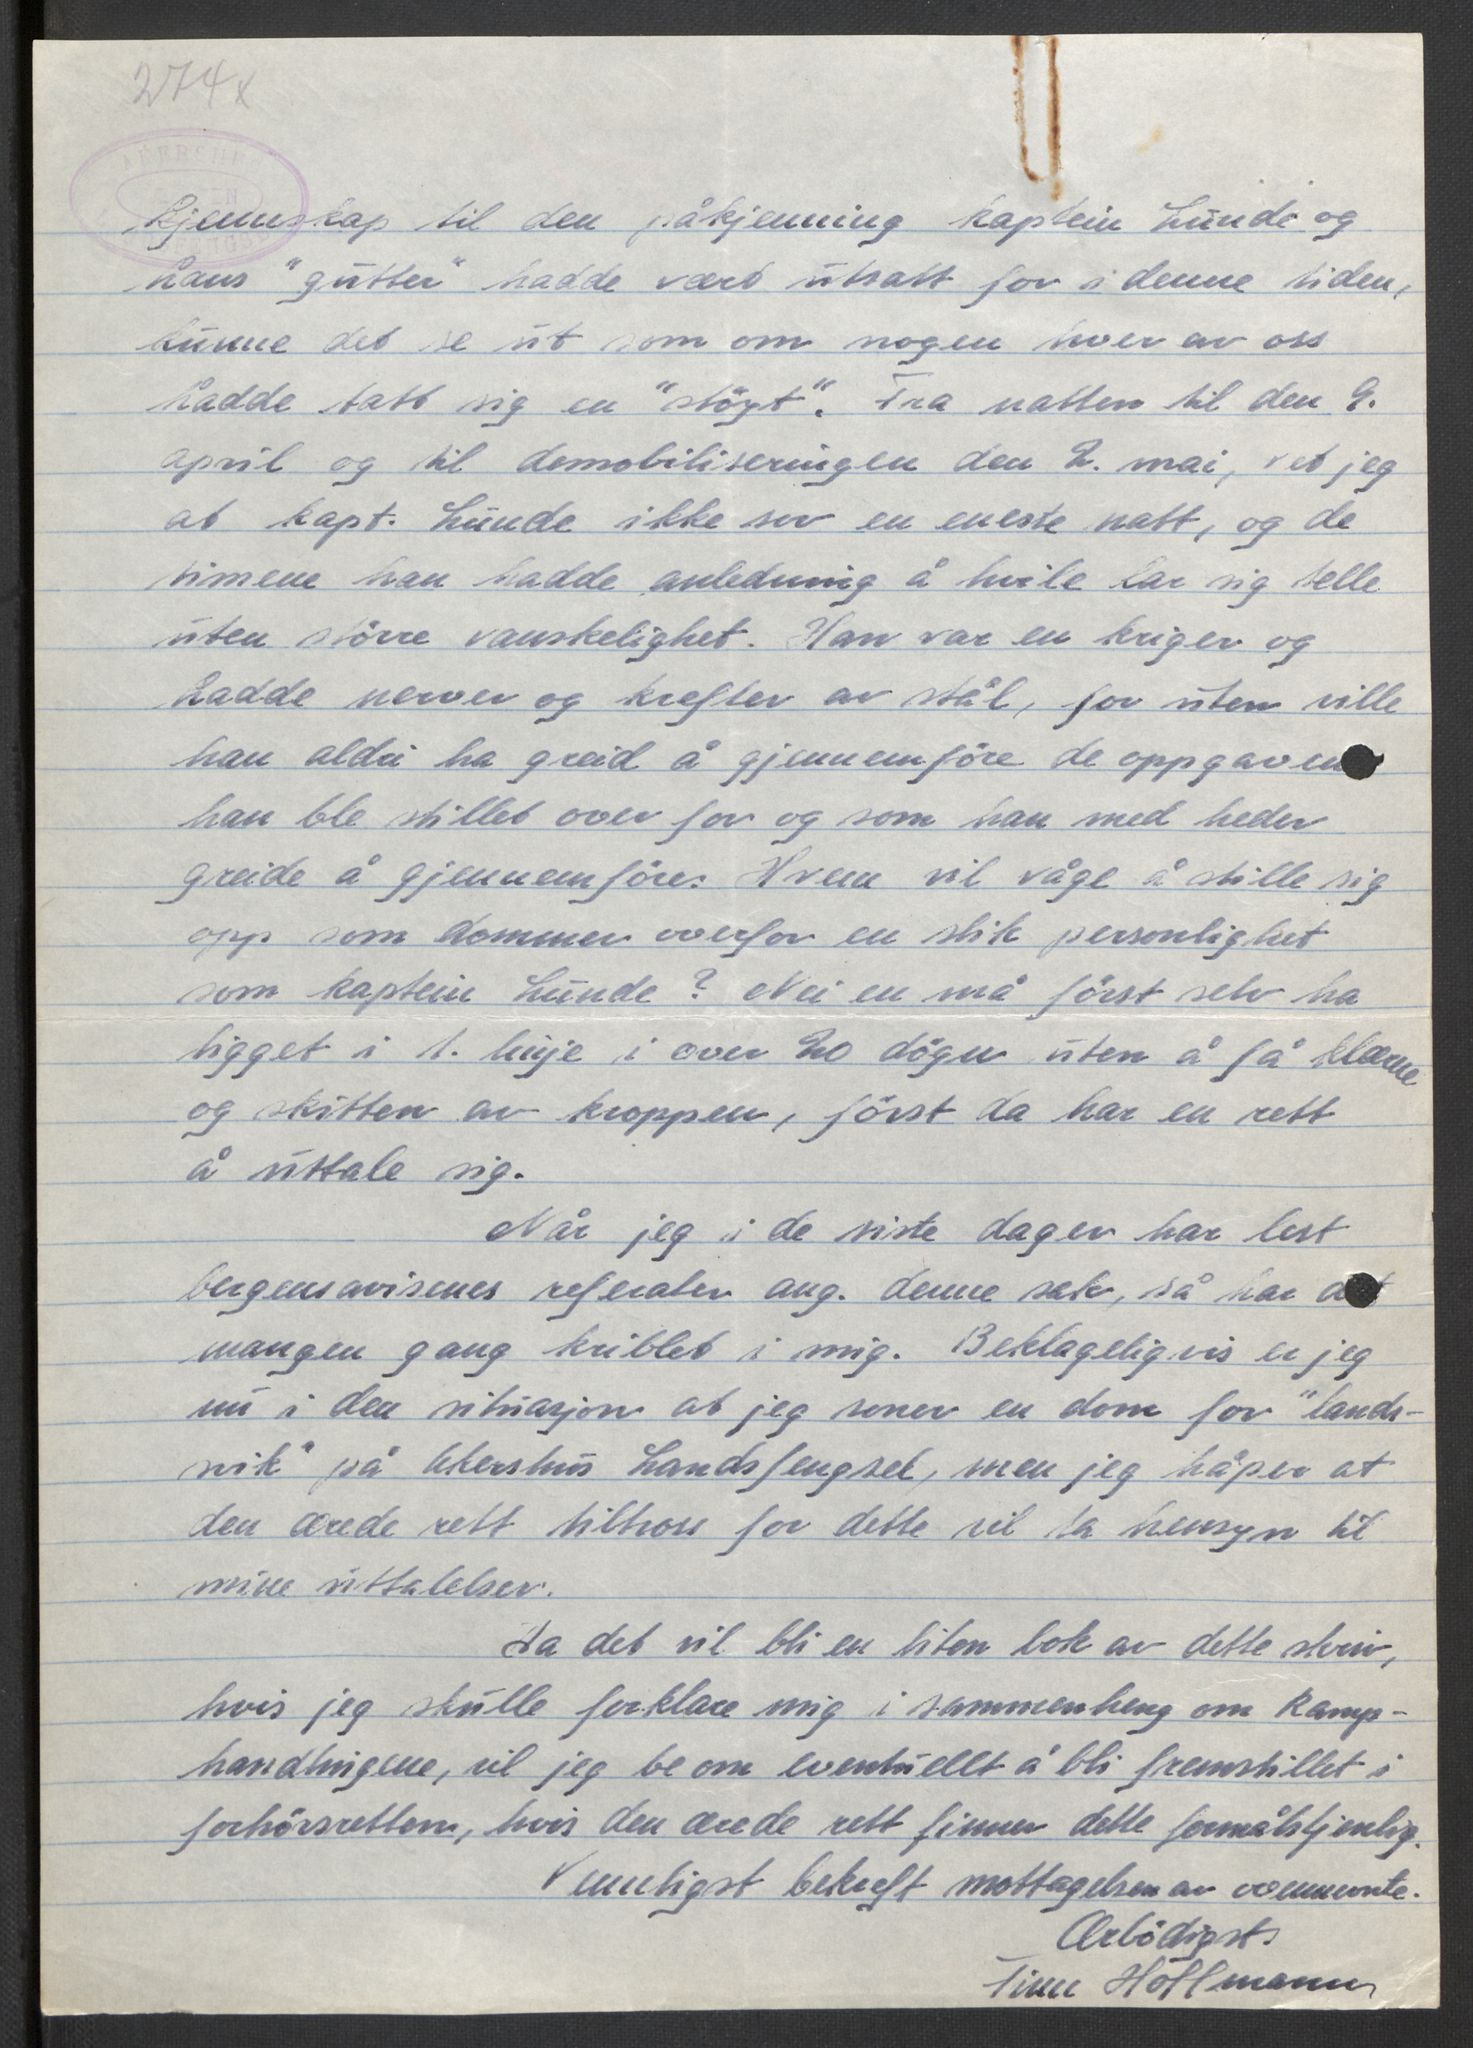 274x
AKERSHUS
kjennskap til den påkjenning kaptein Lunde og
hans "gutter" hadde vært utsatt for i denne tiden,
kunne det se ut som om nogen hver av oss
hadde tatt sig en "støyt". Fra natten til den 9.
april og til demobiliseringen den 2. mai, vet jeg
at kapt. Lunde ikke sov en eneste natt, og de
timene han hadde anledning å hvile lar sig telle
uten större vanskelighet. Han var en kriger og
hadde nerver og krefter av stål, for uten ville
han aldri ha greid å gjennemföre de oppgaven
han ble stillet over for og som han med heder
greide å gjennemföre. Hvem vil våge å stille sig
opp som dommer overfor en slik personlighet
som kaptein Lunde? Nei en må först selv ha
ligget i 1. linje i over 20 dögn uten å få klærne
og skitten av kroppen, först da har en rett
å uttale sig.
Når jeg i de siste dager har lest
bergensavisenes referater ang. denne sak, så har det
mangen gang kriblet i mig. Beklageligvis er jeg
nu i den situasjon at jeg soner en dom for "lands-
svik" på Akershus Landsfengsel, men jeg håper at
den ærede rett tiltross for dette vil ta hensyn til
mine uttalelser.
Da det vil bli en liten bok av dette skriv,
hvis jeg skulle forklare mig i sammenheng om kamp-
handlingene, vil jeg be om eventuellt å bli fremstillet i
forhörsretten, hvis den ærede rett finner dette formålstjenlig.
Vennligst bekreft mottagelsen av ovennevnte.
Ærbödigst.
Finn Hoffmann